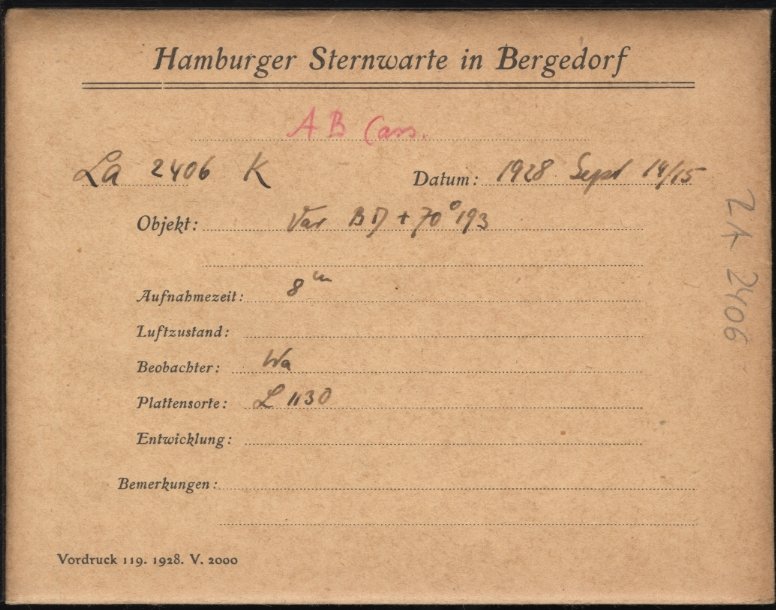 Hamburger Sternwarte in Bergedorf
AB Cass.
La 2406 K Datum: 1928 Sept 14/15
Objekt: Var BD + 70° 193
Aufnahmezeit: 8ᵐ
Luftzustand:
Beobachter: Wa
Plattensorte: L 1130
Entwicklung:
Bemerkungen:
Vordruck 119. 1928. V. 2000
LA 2406